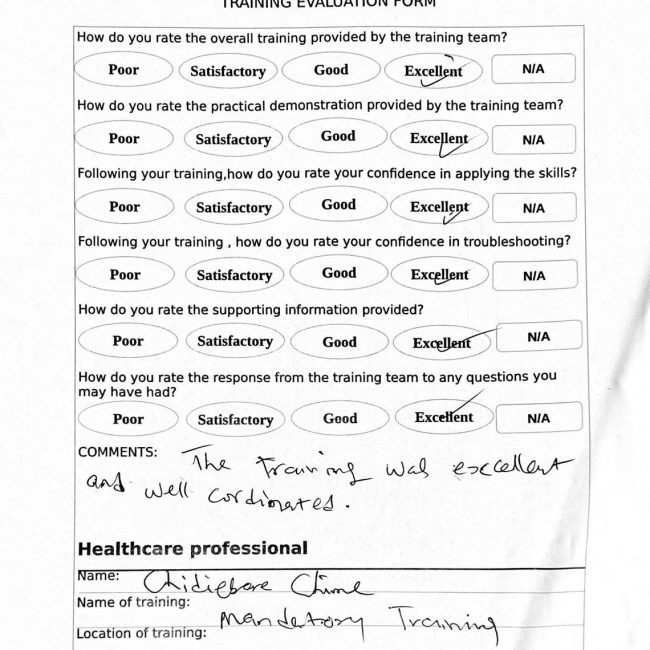 TRAINING EVALUATION FORM
How do you rate the overall training provided by the training team?
Poor Satisfactory Good Excellent N/A
How do you rate the practical demonstration provided by the training team?
Poor Satisfactory Good Excellent N/A
Following your training,how do you rate your confidence in applying the skills?
Poor Satisfactory Good Excellent N/A
Following your training , how do you rate your confidence in troubleshooting?
Poor Satisfactory Good Excellent N/A
How do you rate the supporting information provided?
Poor Satisfactory Good Excellent N/A
How do you rate the response from the training team to any questions you
may have had?
Poor Satisfactory Good Excellent N/A
COMMENTS: The training was excellent
and well cordinated.
Healthcare professional
Name: Chidiebere Chime
Name of training: Mandatory Training
Location of training: